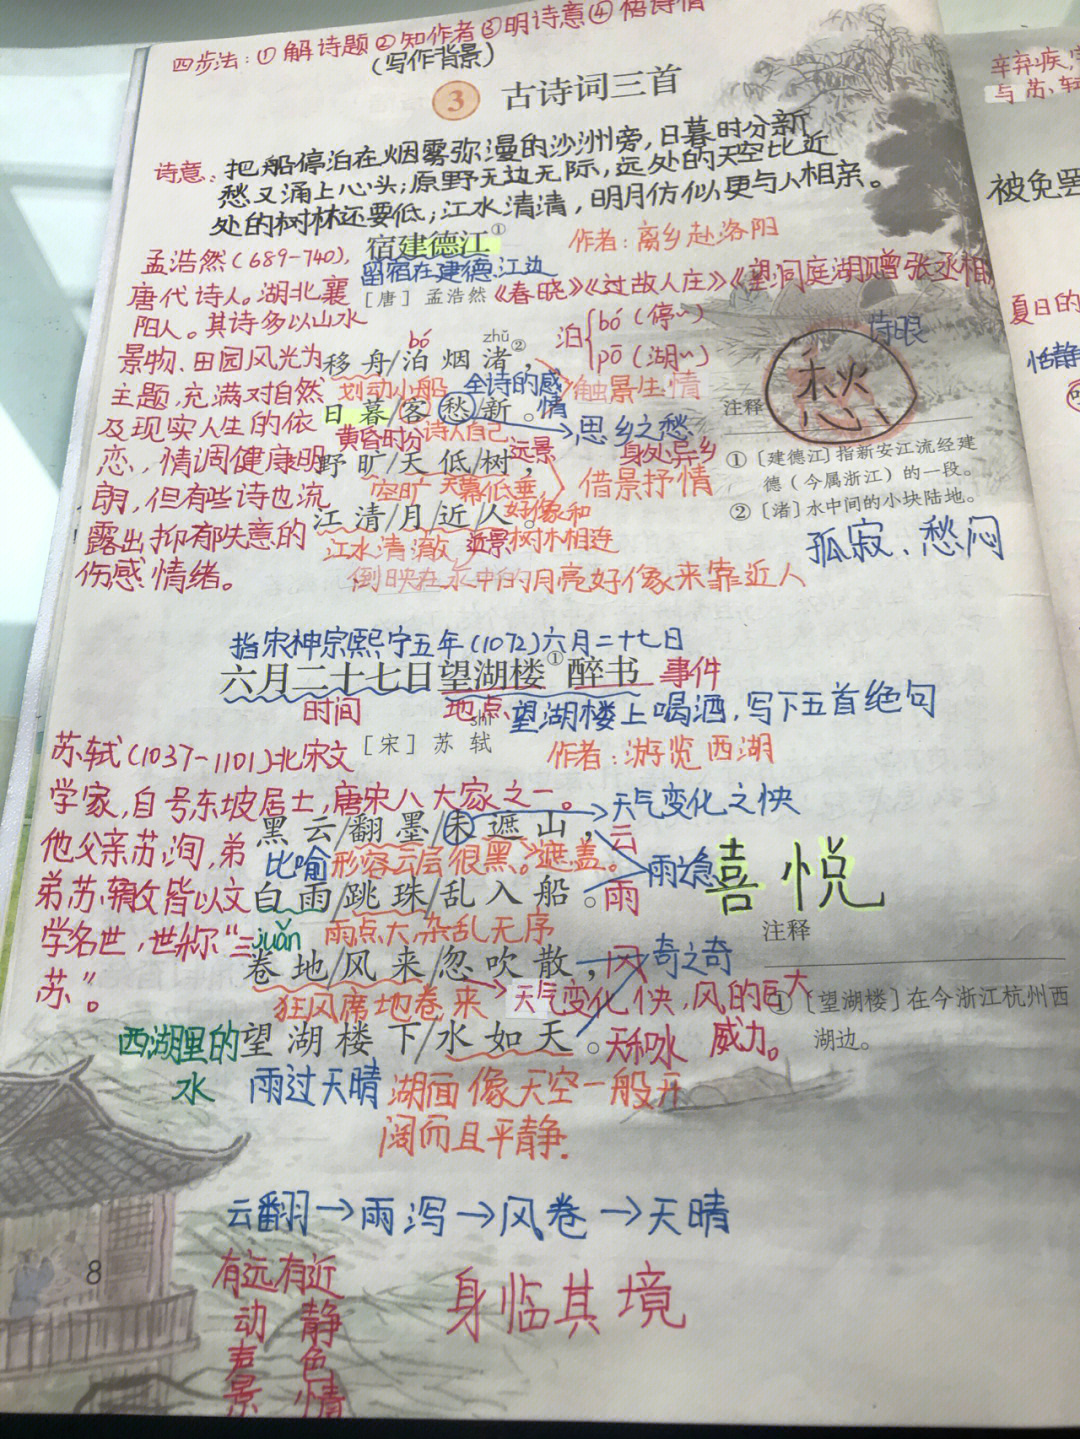 四步法:①解诗题②知作者③明诗意④悟诗情
(写作背景)
3 古诗词三首
诗意:把船停泊在烟雾弥漫的沙洲旁,日暮时分新
愁又涌上心头;原野无边无际,远处的天空比近
处的树林还要低;江水清清,明月仿似更与人相亲。
宿建德江①
作者:离乡赴洛阳
留宿在建德江边
[唐] 孟浩然《春晓》《过故人庄》《望洞庭湖赠张丞相
孟浩然(689-740),
唐代诗人。湖北襄
阳人。其诗多以山水
景物、田园风光为
主题,充满对自然
及现实人生的依
恋,情调健康明
朗,但有些诗也流
露出抑郁失意的
伤感情绪。
bó zhǔ
移舟/泊烟渚②,
泊 bó (停~)
pō (湖~)
划动小船 全诗的感情 触景生情
日暮/客愁/新。
黄昏时分 诗人自己 思乡之愁
远景 身处异乡
野旷/天低/树,
空旷 天幕低垂 借景抒情
好像和
江清/月/近/人。
江水清澈 近景 树木相连
倒映在水中的月亮好像来靠近人
诗眼
愁
注释
①〔建德江〕指新安江流经建
德(今属浙江)的一段。
②〔渚〕水中间的小块陆地。
孤寂、愁闷
指宋神宗熙宁五年(1072)六月二十七日
六月二十七日望湖楼①醉书 事件
时间 地点 望湖楼上喝酒,写下五首绝句
shì
[宋] 苏轼 作者:游览西湖
苏轼(1037-1101)北宋文
学家,自号东坡居士,唐宋八大家之一。
他父亲苏洵,弟
弟苏辙皆以文
学名世,世称“三
苏”。
天气变化之快
黑云/翻墨/未遮山,云
比喻 形容云层很黑。遮盖。 雨之急
白雨/跳珠/乱入船。雨
喜悦
juǎn 雨点大,杂乱无序
卷地/风来/忽吹散,风 奇之奇
狂风席地卷来 天气变化快,风的巨大
威力。
望湖楼下/水如天。天和水
西湖里的
水
雨过天晴 湖面像天空一般开
阔而且平静.
注释
①〔望湖楼〕在今浙江杭州西
湖边。
云翻→雨泻→风卷→天晴
有远有近
动 静
声 色
景 情
身临其境
8
辛弃疾,
与苏、
被免罢
夏日的
恬静